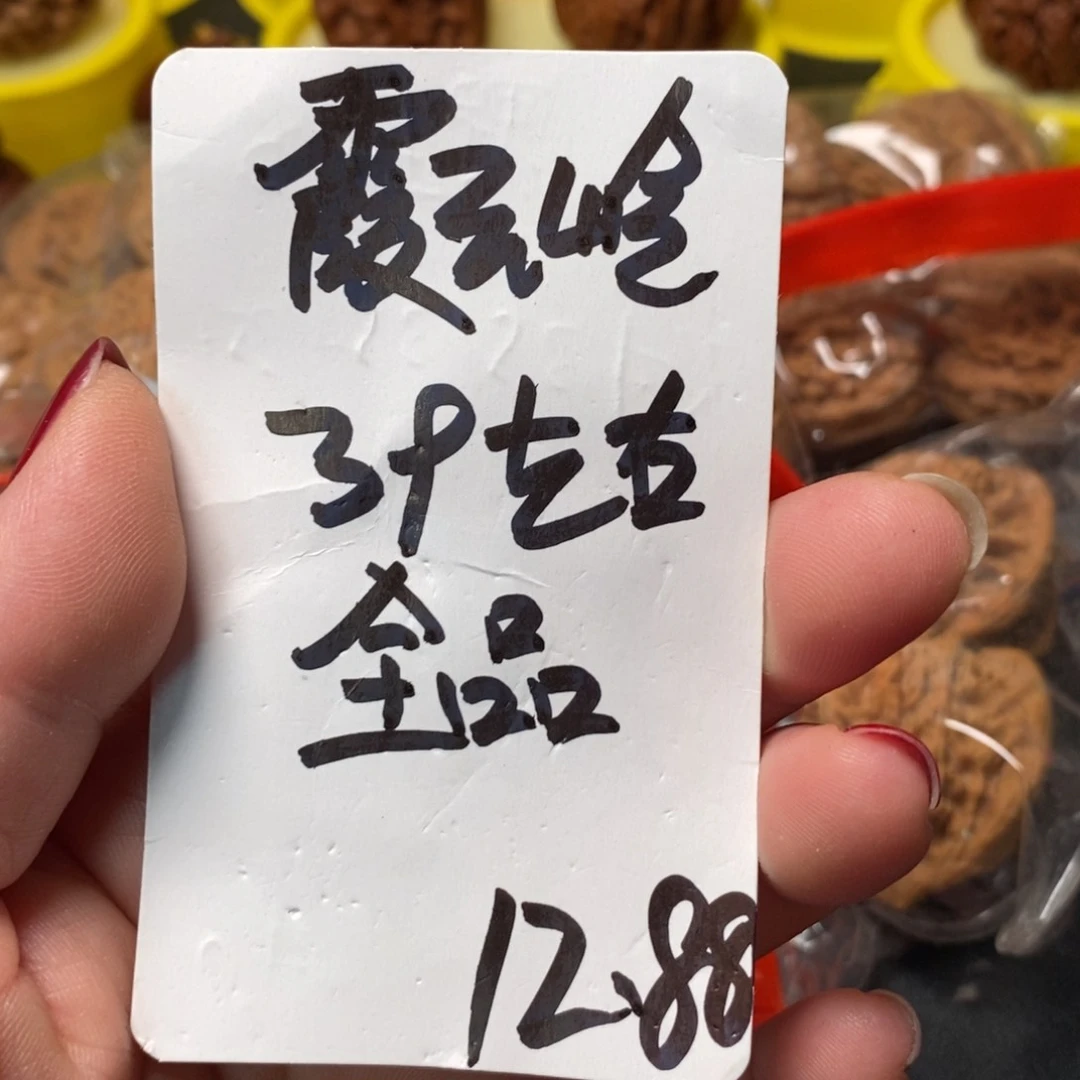 霞云岭
39左右
全品
12.88